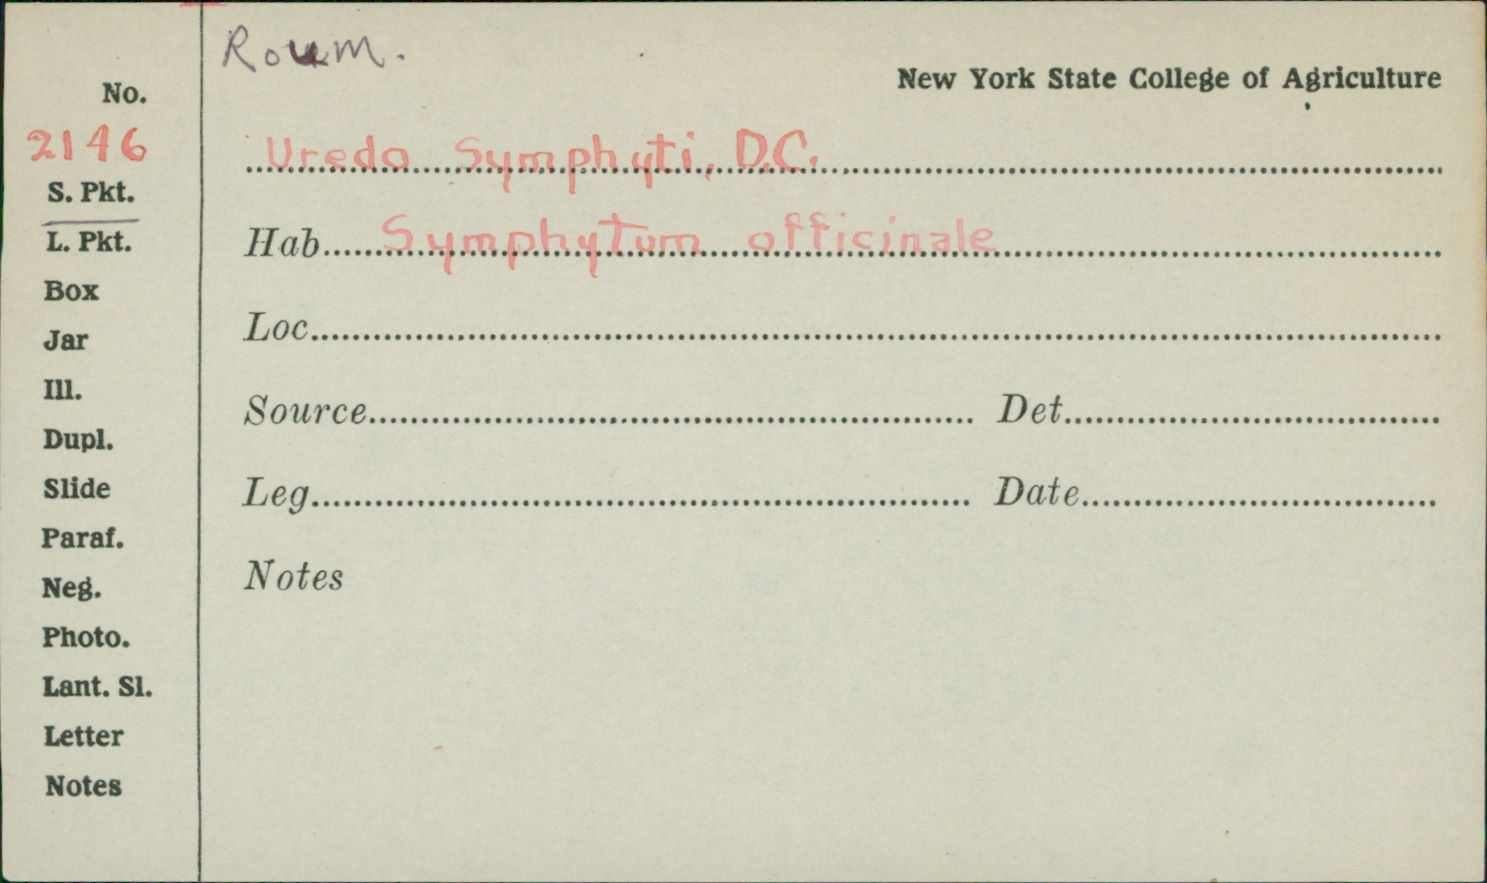 Roum.
New York State College of Agriculture
No.
2146
Uredo Symphyti, D.C.
S. Pkt.
L. Pkt.
Hab. Symphytum officinale
Box
Loc.
Jar
Ill.
Source Det.
Dupl.
Slide
Leg. Date
Paraf.
Neg.
Notes
Photo.
Lant. Sl.
Letter
Notes